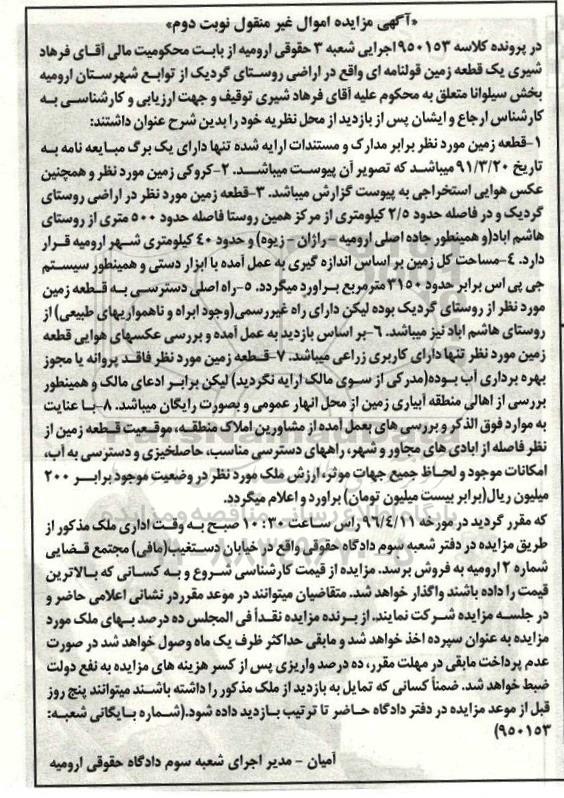 «آگهی مزایده اموال غیر منقول نوبت دوم»
در پرونده کلاسه ۹۵۰۱۵۳اجرایی شعبه ۳ حقوقی ارومیه از بابت محکومیت مالی آقای فرهاد
شیری یک قطعه زمین قولنامه ای واقع در اراضی روستای گردیک از توابع شهرستان ارومیه
بخش سیلوانا متعلق به محکوم علیه آقای فرهاد شیری توقیف و جهت ارزیابی و کارشناسی به
کارشناس ارجاع و ایشان پس از بازدید از محل نظریه خود را بدین شرح عنوان داشتند:
۱-قطعه زمین مورد نظر برابر مدارک و مستندات ارایه شده تنها دارای یک برگ مبایعه نامه به
تاریخ ۹۱/۳/۲۰ میباشد که تصویر آن پیوست میباشد. ۲-کروکی زمین مورد نظر و همچنین
عکس هوایی استخراجی به پیوست گزارش میباشد. ۳-قطعه زمین مورد نظر در اراضی روستای
گردیک و در فاصله حدود ۲/۵ کیلومتری از مرکز همین روستا فاصله حدود ۵۰۰ متری از روستای
هاشم اباد(و همینطور جاده اصلی ارومیه - راژان - زیوه) و حدود ۴۰ کیلومتری شهر ارومیه قرار
دارد. ۴-مساحت کل زمین بر اساس اندازه گیری به عمل آمده با ابزار دستی و همینطور سیستم
جی پی اس برابر حدود ۳۱۵۰ مترمربع براورد میگردد. ۵-راه اصلی دسترسی به قطعه زمین
مورد نظر از روستای گردیک بوده لیکن دارای راه غیررسمی(وجود ابراه و ناهمواریهای طبیعی) از
روستای هاشم اباد نیز میباشد. ۶-بر اساس بازدید به عمل آمده و بررسی عکسهای هوایی قطعه
زمین مورد نظر تنها دارای کاربری زراعی میباشد. ۷-قطعه زمین مورد نظر فاقد پروانه یا مجوز
بهره برداری آب بوده(مدرکی از سوی مالک ارایه نگردید) لیکن برابر ادعای مالک و همینطور
بررسی از اهالی منطقه آبیاری زمین از محل انهار عمومی و بصورت رایگان میباشد. ۸-با عنایت
به موارد فوق الذکر و بررسی های بعمل آمده از مشاورین املاک منطقه، موقعیت قطعه زمین از
نظر فاصله از ابادی های مجاور و شهر، راههای دسترسی مناسب، حاصلخیزی و دسترسی به آب،
امکانات موجود و لحاظ جمیع جهات موثر، ارزش ملک مورد نظر در وضعیت موجود برابر ۲۰۰
میلیون ریال(برابر بیست میلیون تومان) براورد و اعلام میگردد.
که مقرر گردید در مورخه ۹۶/۴/۱۱ راس ساعت ۱۰:۳۰ صبح به وقت اداری ملک مذکور از
طریق مزایده در دفتر شعبه سوم دادگاه حقوقی واقع در خیابان دستغیب(مافی) مجتمع قضایی
شماره ۲ ارومیه به فروش برسد. مزایده از قیمت کارشناسی شروع و به کسانی که بالاترین
قیمت را داده باشند واگذار خواهد شد. متقاضیان میتوانند در موعد مقرر در نشانی اعلامی حاضر و
در جلسه مزایده شرکت نمایند. از برنده مزایده نقداً فی المجلس ده درصد بهای ملک مورد
مزایده به عنوان سپرده اخذ خواهد شد و مابقی حداکثر ظرف یک ماه وصول خواهد شد در صورت
عدم پرداخت مابقی در مهلت مقرر، ده درصد واریزی پس از کسر هزینه های مزایده به نفع دولت
ضبط خواهد شد. ضمناً کسانی که تمایل به بازدید از ملک مذکور را داشته باشند میتوانند پنج روز
قبل از موعد مزایده در دفتر دادگاه حاضر تا ترتیب بازدید داده شود.(شماره بایگانی شعبه:
۹۵۰۱۵۳)
آمیان - مدیر اجرای شعبه سوم دادگاه حقوقی ارومیه